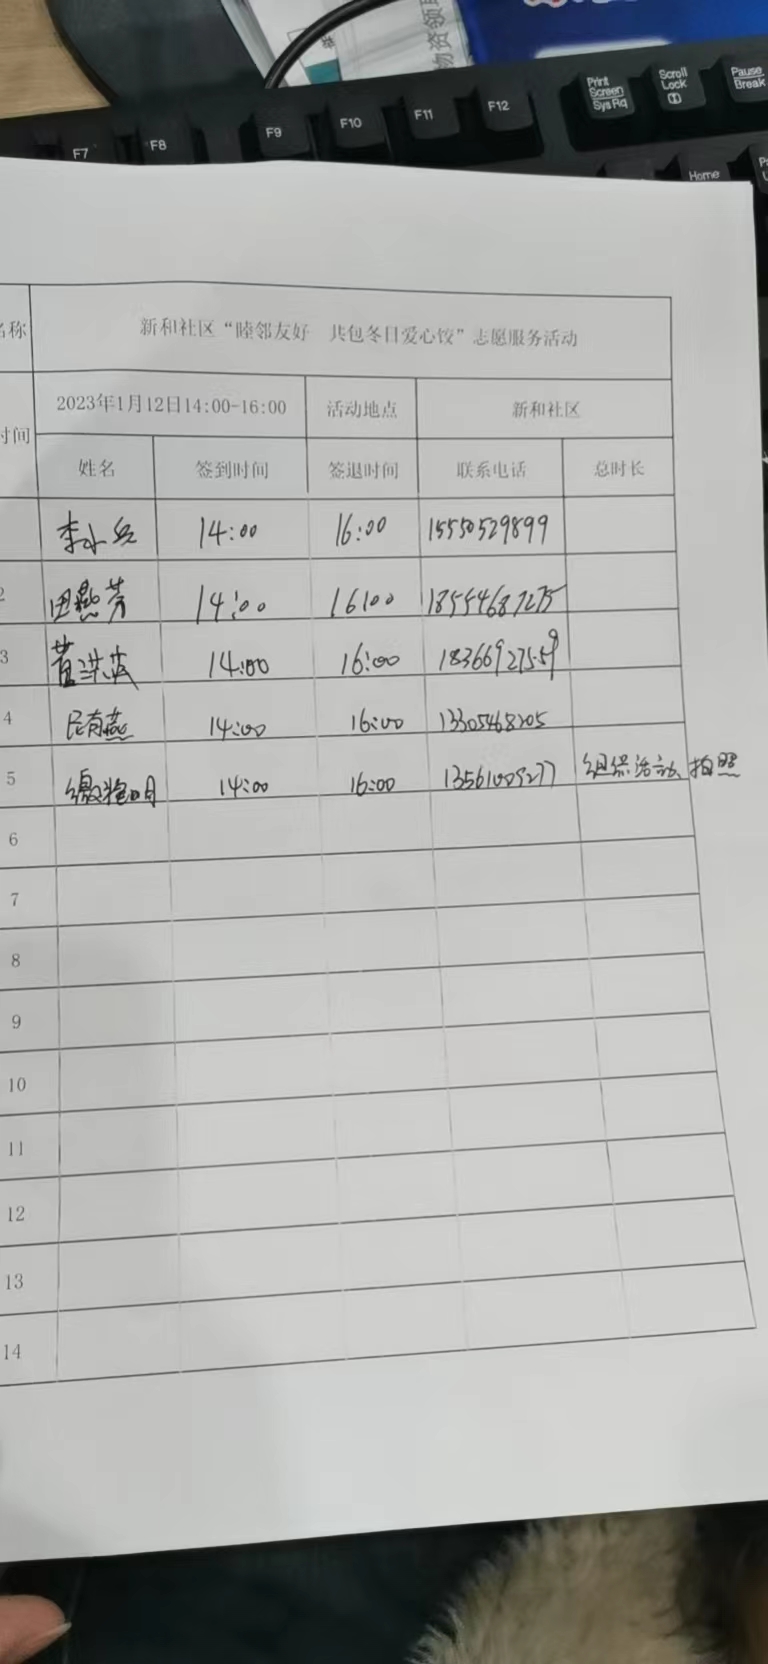 物资领取
Print Screen SysRq
Scroll Lock
Pause Break
F7 F8 F9 F10 F11 F12
Home
名称 新和社区“睦邻友好 共包冬日爱心饺”志愿服务活动
时间 2023年1月12日14:00-16:00 活动地点 新和社区
姓名 签到时间 签退时间 联系电话 总时长
李小兵 14:00 16:00 15550529899
2 田燕芳 14:00 16:00 18554687275
3 董洪波 14:00 16:00 18366927559
4 14:00 16:00 13305468205
5 14:00 16:00 13561009277 组织活动、拍照
6
7
8
9
10
11
12
13
14